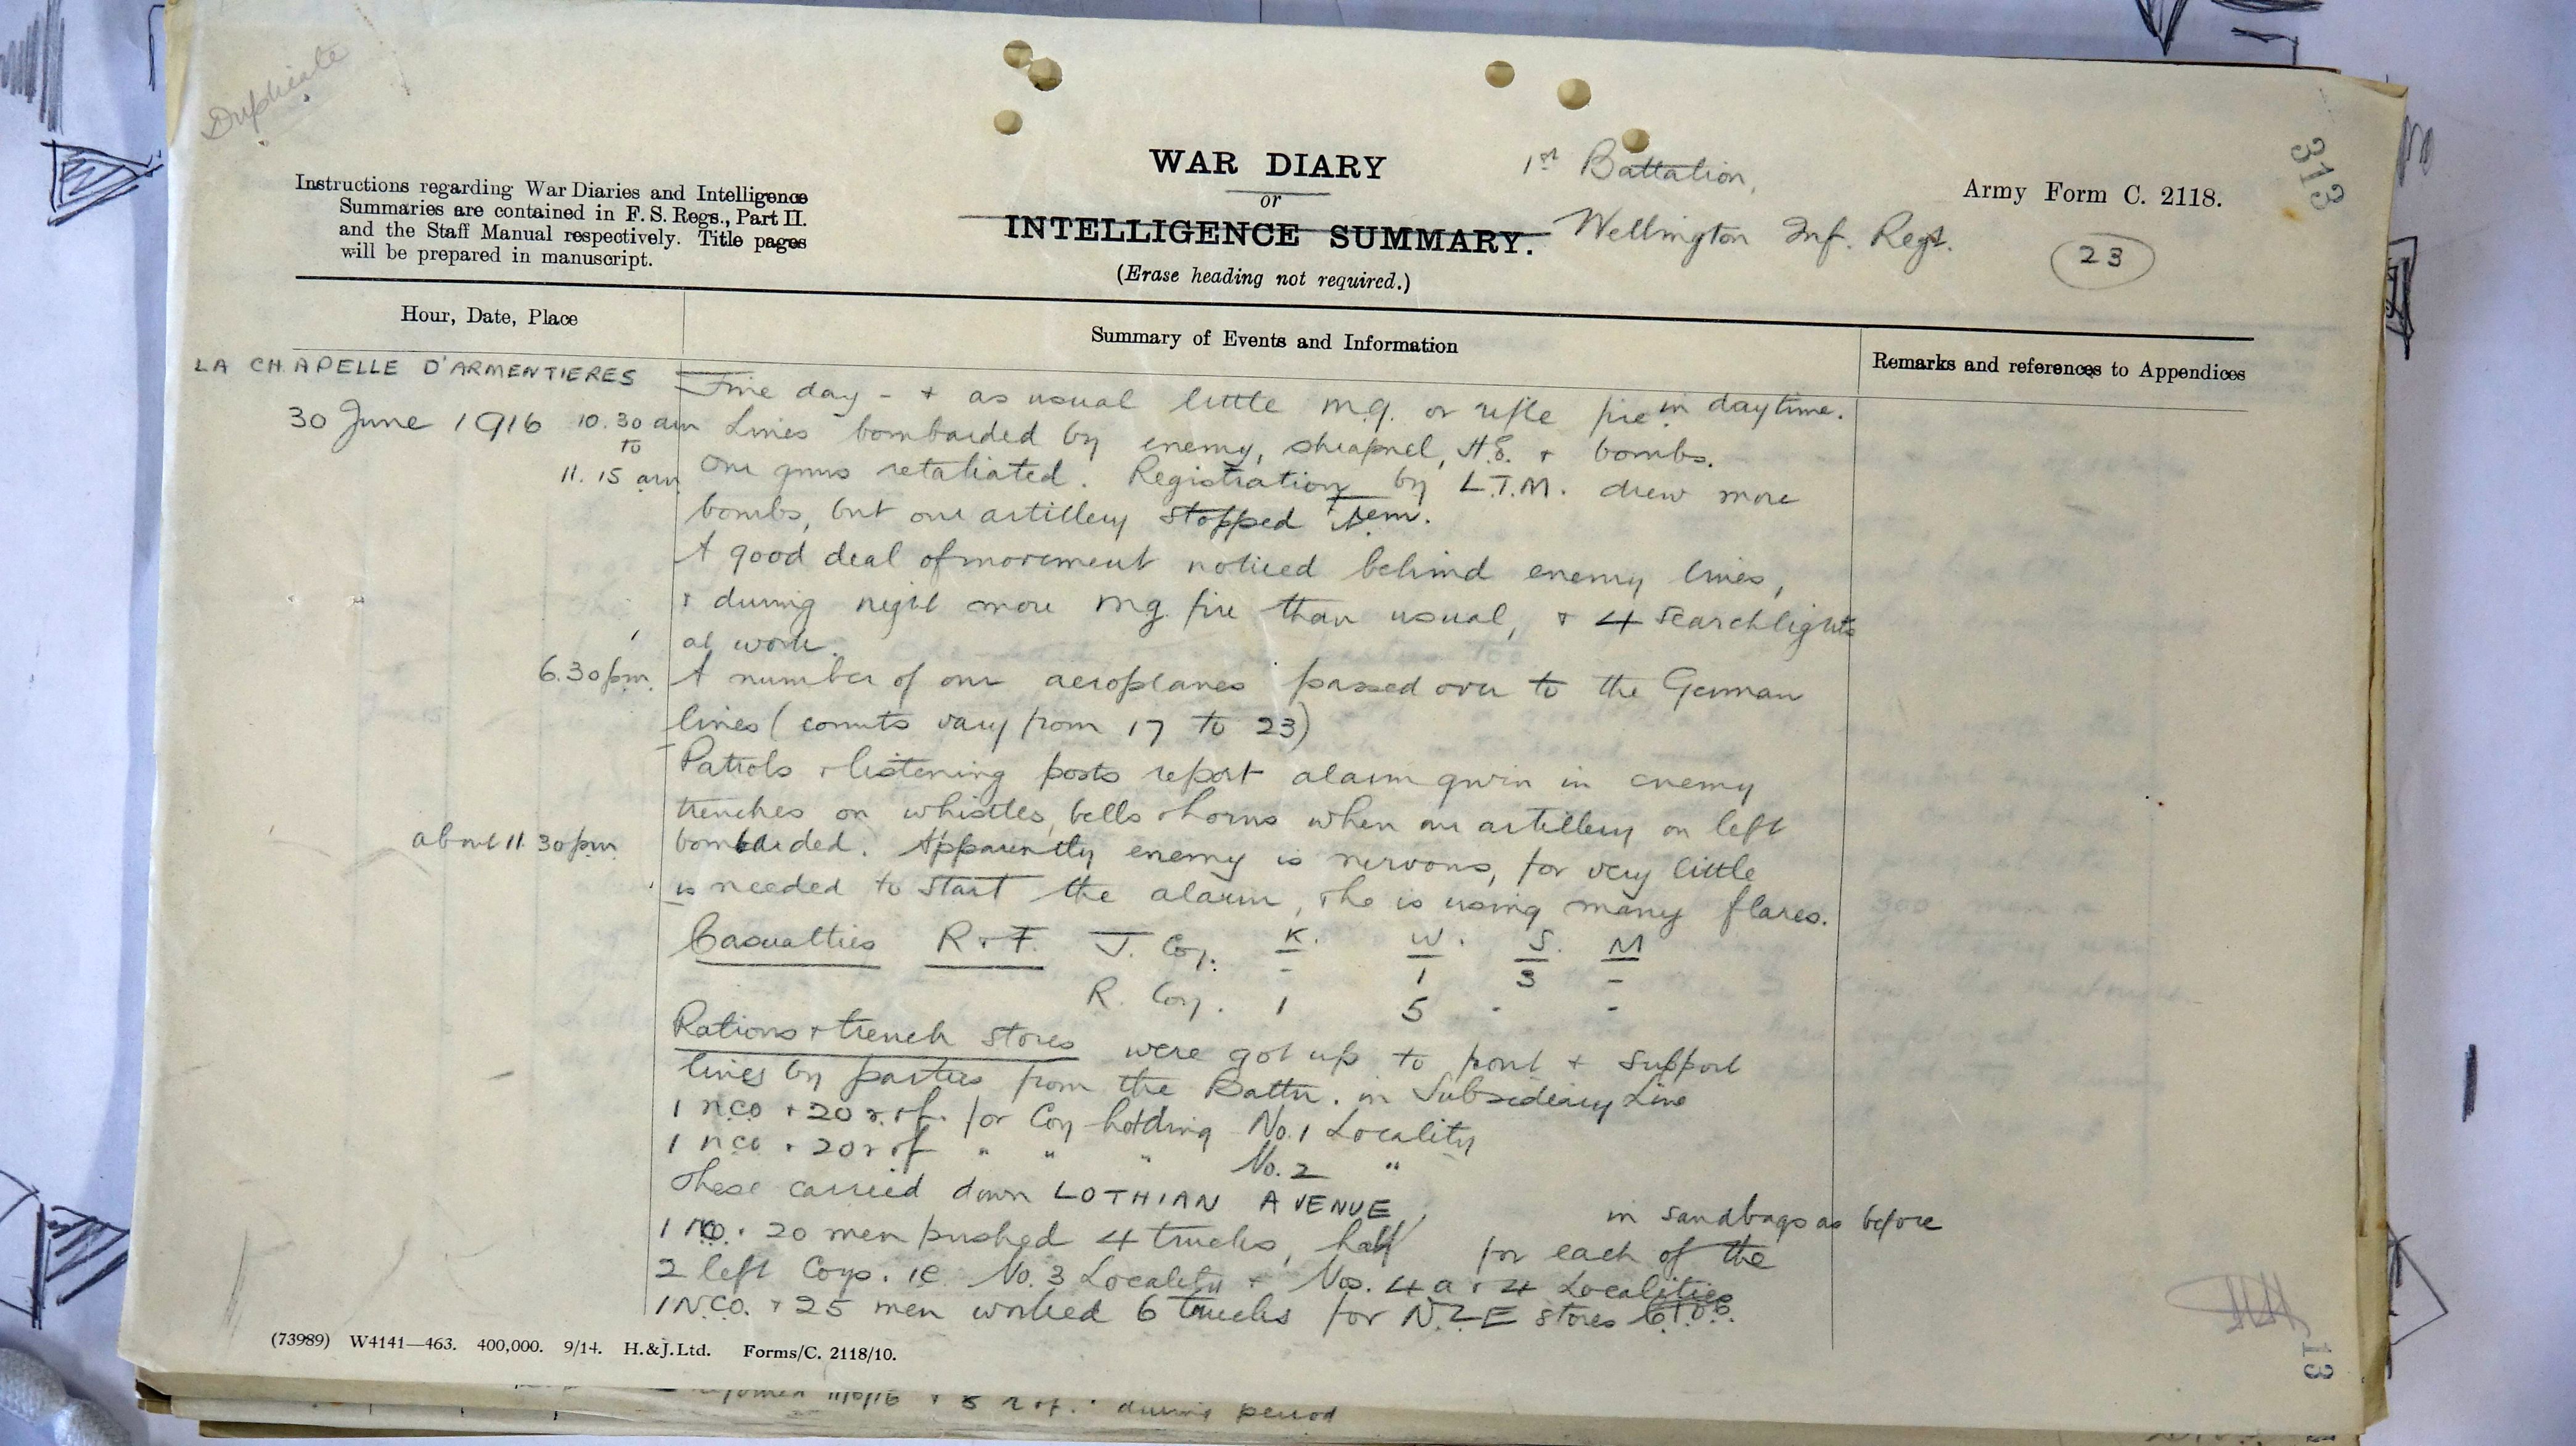 Duplicate
313
Instructions regarding War Diaries and Intelligence
Summaries are contained in F. S. Regs., Part II.
and the Staff Manual respectively. Title pages
will be prepared in manuscript.
WAR DIARY
or
INTELLIGENCE SUMMARY.
(Erase heading not required.)
1st Battalion,
Wellington Inf. Regt.
Army Form C. 2118.
23
Hour, Date, Place
Summary of Events and Information
Remarks and references to Appendices
LA CHAPELLE D'ARMENTIERES
30 June 1916 10.30 am
to
11.15 am
Fine day - + as usual little m.g. or rifle fire in daytime.
Lines bombarded by enemy, shrapnel, H.E. + bombs.
Our guns retaliated. Registration by L.T.M. drew more
bombs, but our artillery stopped them.
A good deal of movement noticed behind enemy lines,
+ during night more mg. fire than usual, + 4 searchlights
at work.
6.30 pm. A number of our aeroplanes passed over to the German
lines (counts vary from 17 to 23)
Patrols + listening posts report alarm given in enemy
trenches on whistles, bells + horns when our artillery on left
about 11.30 pm bombarded. Apparently enemy is nervous, for very little
is needed to start the alarm, + he is using many flares.
Casualties R + F. K. W. S. M
J. Coy. - 1 3 -
R. Coy. 1 5 - -
Rations + trench stores were got up to front + support
lines by parties from the Battn. in Subsidiary Line
1 nco + 20 r. + f. for Coy holding No. 1 Locality
1 nco + 20 r + f " " " No. 2 "
These carried down LOTHIAN AVENUE, in sandbags as before
1 NCO. + 20 men pushed 4 trucks, half for each of the
2 left Coys. ie No. 3 Locality + Nos. 4a + 4 Localities
1 N.C.O. + 25 men worked 6 trucks for N.Z.E stores
(73989) W4141—463. 400,000. 9/14. H.&J.Ltd. Forms/C. 2118/10.
13
11/6/16 + 8 r + f. during period